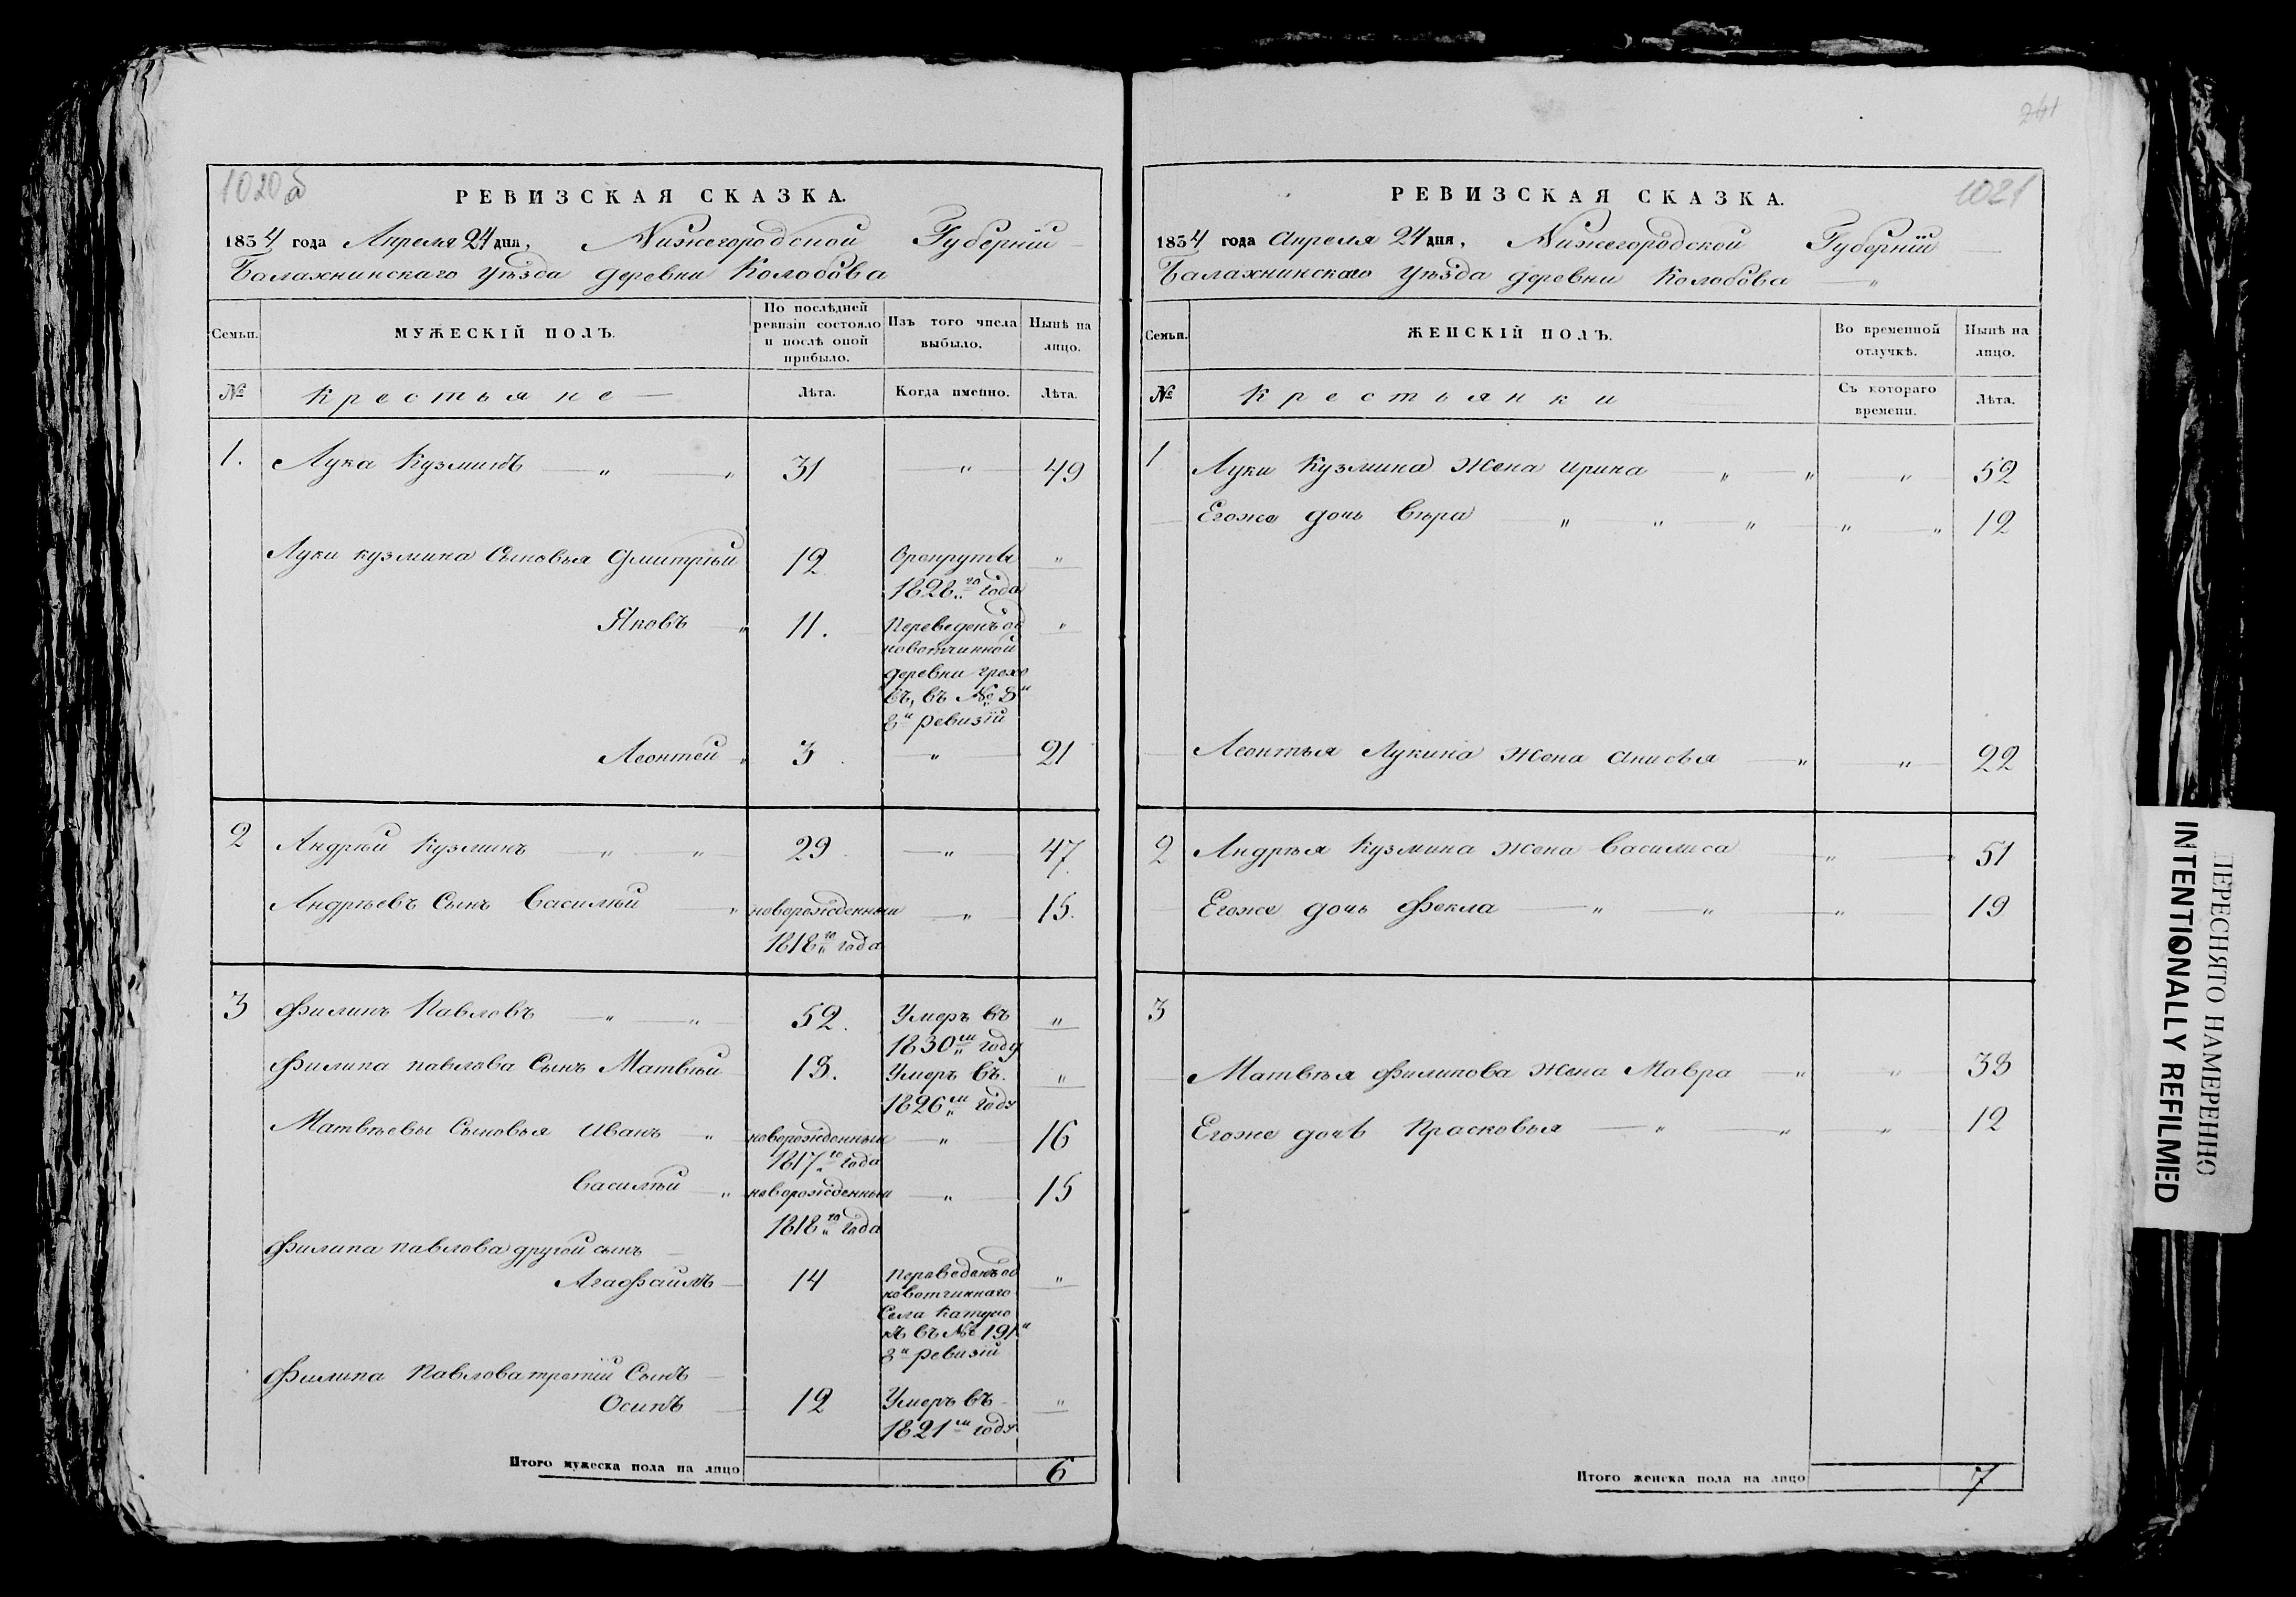 241
1020 об
РЕВИЗСКАЯ СКАЗКА.
1834 года Апреля 24 дня, Нижегородской Губерніи
Балахнинскаго уѣзда деревни Колобова
Семьи.
МУЖЕСКІЙ ПОЛЪ.
По послѣдней ревизіи состояло и послѣ оной прибыло.
Изъ того числа выбыло.
Нынѣ на лицо.
№ Крестьяне Лѣта. Когда именно. Лѣта.
1. Лука Кузминъ 31 49
Луки кузмина Сыновья Дмитрѣй 12 Врекруты
1828го года
Яковъ 11. Переведенъ од
новотчинной
деревни грехо
въ, въ № 8й
8й ревизіи
Леонтей 3 21
2 Андрѣй Кузминъ 29 47
Андрѣевъ Сынъ Василѣй новорожденный 15.
1818го года
3 Филипъ Павловъ 52. Умеръ въ
1830м году
Филипа павлова Сынъ Матвѣй 18. Умеръ въ
1826м году
Матвѣевы Сыновья Иванъ новорожденный 16
1817го года
Василѣй новорожденный 15
1818го года
Филипа павлова другой сынъ
Агафаилъ 14 Переведенъ од
новотчиннаго
Села Катуно
къ въ № 191й
8й ревизіи
Филипа Павлова третій Сынъ
Осипъ 12 Умеръ въ
1821м году
Итого мужеска пола на лицо 6
1021
РЕВИЗСКАЯ СКАЗКА.
1834 года Апреля 24 дня, Нижегородской Губерніи
Балахнинскаго уѣзда деревни Колобова
Семьи.
ЖЕНСКІЙ ПОЛЪ.
Во временной отлучкѣ.
Нынѣ на лицо.
№ Крестьянки Съ котораго времени. Лѣта.
1 Луки Кузмина Жена Ирина 52
Егоже дочь Вѣра 12
Леонтья Лукина Жена Анисья 22
2 Андрѣя Кузмина Жена Василиса 51
Егоже дочь Фекла 19
3
Матвѣя Филипова Жена Мавра 38
Егоже дочь Прасковья 12
Итого женска пола на лицо 7
ПЕРЕСНЯТО НАМЕРЕННО
INTENTIONALLY REFILMED